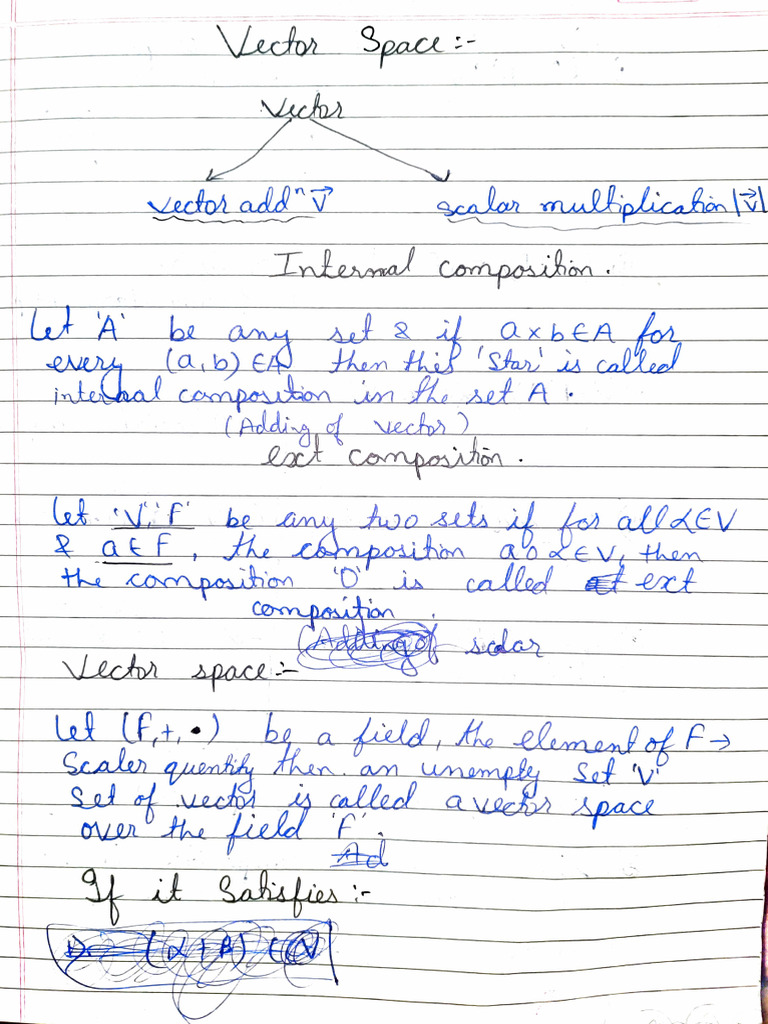 Vector Space :-
Vector
Vector addⁿ V⃗
scalar multiplication |V⃗|
Internal composition.
Let 'A' be any set & if a×b∈A for
every (a,b)∈A then this 'Star' is called
internal composition in the set A.
(Adding of vector)
ext composition.
Let 'V', 'F' be any two sets if for all α∈V
& a∈F, the composition a o α∈V, then
the composition 'O' is called ext
composition.
(Adding of scalar
Vector space :-
Let (F,+,•) be a field, the element of F→
Scaler quentify then an unempty Set 'V'
Set of vector is called a vector space
over the field 'F'.
Ad
If it Satisfies :-
(α+β)∈V